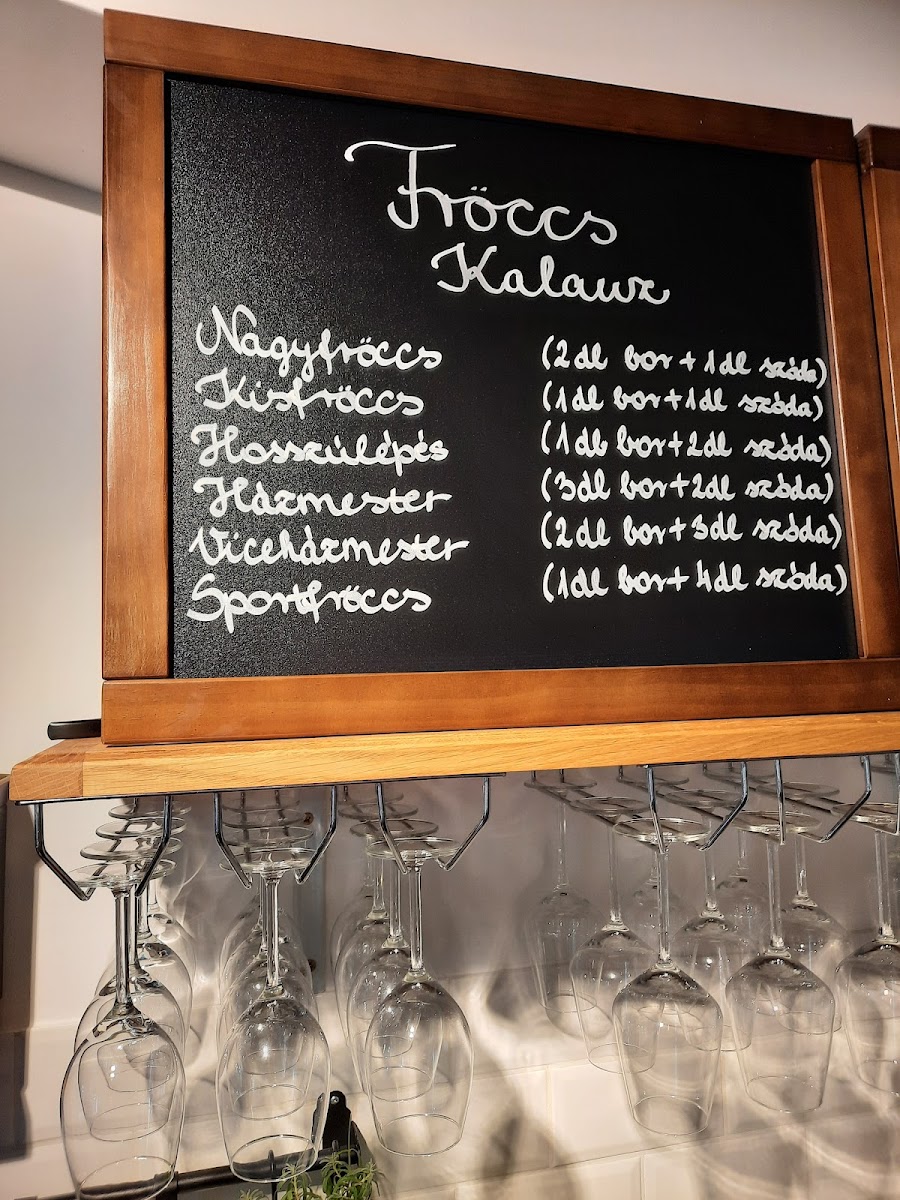 Fröccs
Kalauz
Nagyfröccs (2dl bor + 1dl szóda)
Kisfröccs (1dl bor + 1dl szóda)
Hosszúlépés (1dl bor + 2dl szóda)
Házmester (3dl bor + 2dl szóda)
Viceházmester (2dl bor + 3dl szóda)
Sportfröccs (1dl bor + 4dl szóda)